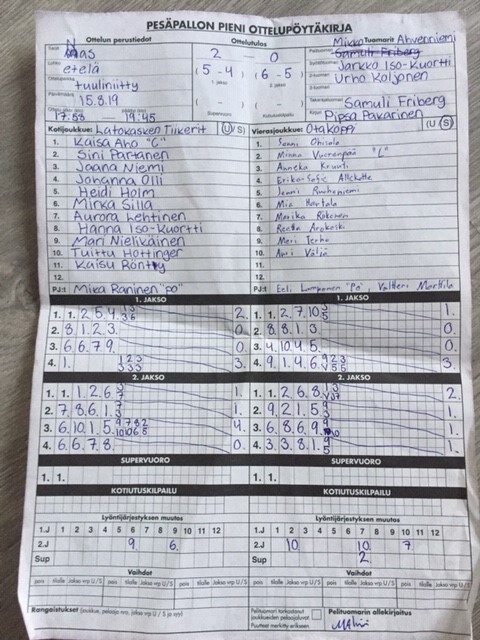 PESÄPALLON PIENI OTTELUPÖYTÄKIRJA
Ottelun perustiedot
Ottelutulos
Tuomarit
Mikko Ahvenniemi
Naas
2 - 0
Samuli Friberg
etelä
(5 - 4) (6 - 5)
Jarkko Iso-Kuortti
tuuliniitty
1. jakso
2. jakso
Urho Koljonen
15.8.19
( - ) ( - )
Samuli Friberg
17:58 — 19:45
Supervuoro
Kotiutuskilpailu
Pipsa Pakarinen
Kotijoukkue: Latokasken Tiikerit (U/S)
Vierasjoukkue: Otakoppi (U/S)
1. Kaisa Aho "C"
2. Sini Partanen
3. Jaana Niemi
4. Johanna Olli
5. Heidi Holm
6. Minka Silla
7. Aurora Lehtinen
8. Hanna Iso-Kuortti
9. Mari Nieliväinen
10. Tuittu Hottinger
11. Kaisu Röntty
12.
PJ:t Mika Raninen "PO"
1. Sanni Ohisalo
2. Minna
3. Anneka
4. Erika-Sofie
5. Jenni Ruuhoniemi
6. Mia Hartala
7. Marika
8. Reetta Arokoski
9. Meri Terho
10. Auri Väljä
11.
12.
PJ:t Eel. Lamponen "PO", Valtteri Marttila
1. JAKSO
1. 1. 2. 5. 4. 2.
2. 8. 1. 2. 3. 0.
3. 6. 6. 7. 9. 0.
4. 1. 1 2 3 3.
3 3 3
1. JAKSO
1. 1. 2. 7. 10. 1.
2. 8. 8. 1. 3. 0.
3. 4. 10. 4. 5. 0.
4. 9. 1. 4. 6. 3.
2. JAKSO
1. 1. 1. 2. 6. 1.
2. 7. 8. 6. 1. 1.
3. 6. 10. 1. 5. 9 7 8 2 4.
10 10 6 5
4. 6. 6. 7. 8. 0.
2. JAKSO
1. 1. 2. 6. 8. 2.
2. 9. 2. 1. 5. 1.
3. 6. 8. 6. 9. 1.
4. 3. 3. 8. 1. 1.
SUPERVUORO
1. 1.
SUPERVUORO
1. 1.
KOTIUTUSKILPAILU
KOTIUTUSKILPAILU
Lyöntijärjestyksen muutos
1.J 1 2 3 4 5 6 7 8 9 10 11 12
2.J 9. 6.
Sup
Lyöntijärjestyksen muutos
1.J 1 2 3 4 5 6 7 8 9 10 11 12
2.J 10. 10. 7.
Sup 2.
Vaihdot
Vaihdot
pois tilalle Jakso vrp U/S pois tilalle Jakso vrp U/S
pois tilalle Jakso vrp U/S pois tilalle Jakso vrp U/S
Rangaistukset (joukkue, pelaaja nro, jakso, vrp U/S ja syy)
Pelituomari tarkastanut joukkueiden pelaajakortit
Puutteet merkitty erikseen
Pelituomarin allekirjoitus